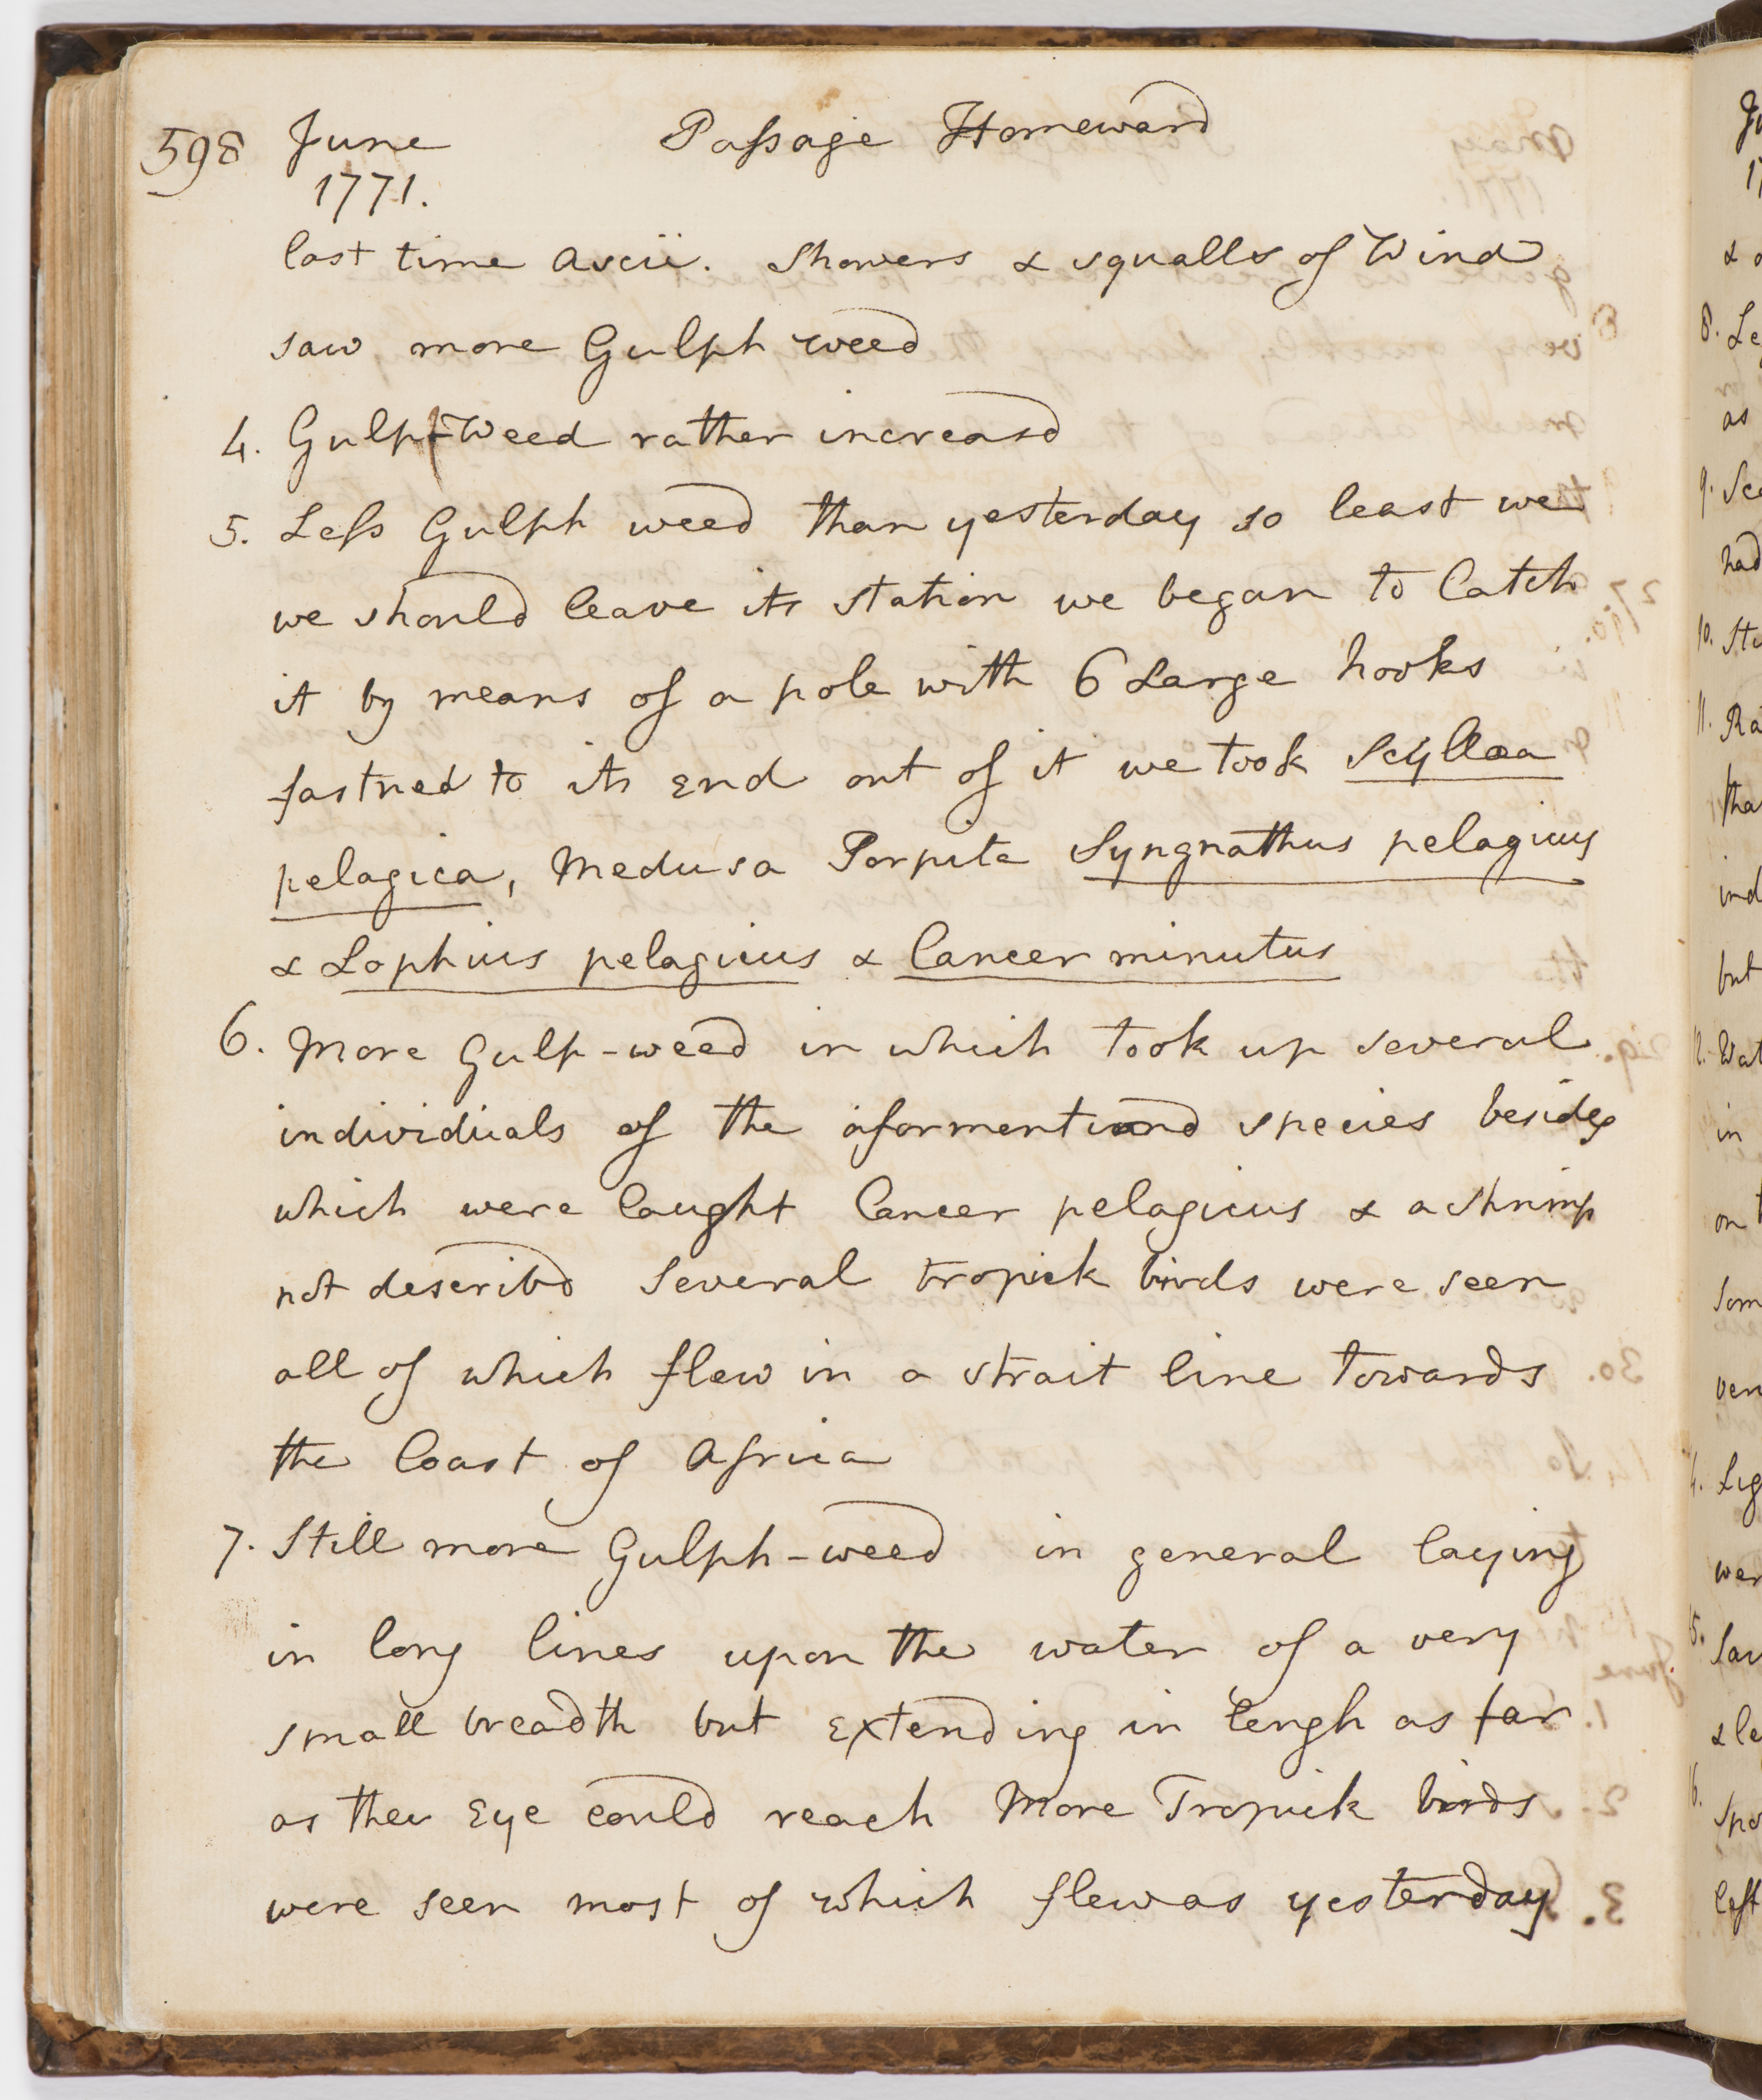 598 June Passage Homeward
1771.
last time Ascii. Showers & squalls of Wind
saw more Gulph weed
4. Gulph Weed rather increasd
5. Less Gulph weed than yesterday so least we
we should leave its station we began to Catch
it by means of a pole with 6 Large hooks
fastned to its End out of it we took Scyllaa
pelagica, Medusa Porpita Syngnathus pelagicus
& Lophius pelagicus & Cancer minutus
6. More Gulp-weed in which took up several
individuals of the aformentiond species besides
which were Caught Cancer pelagicus & a shrimp
not describd Several tropick birds were seen
all of which flew in a strait line towards
the Coast of Africa
7. Still more Gulph-weed in general laying
in long lines upon the water of a very
small breadth but Extending in lengh as far
as the Eye could reach More Tropick birds
were seen most of which flew as yesterday
8. Le
as
9.
had
10.
11. Ra
tha
ind
but
in
on
Som
ver
Lig
wer
left